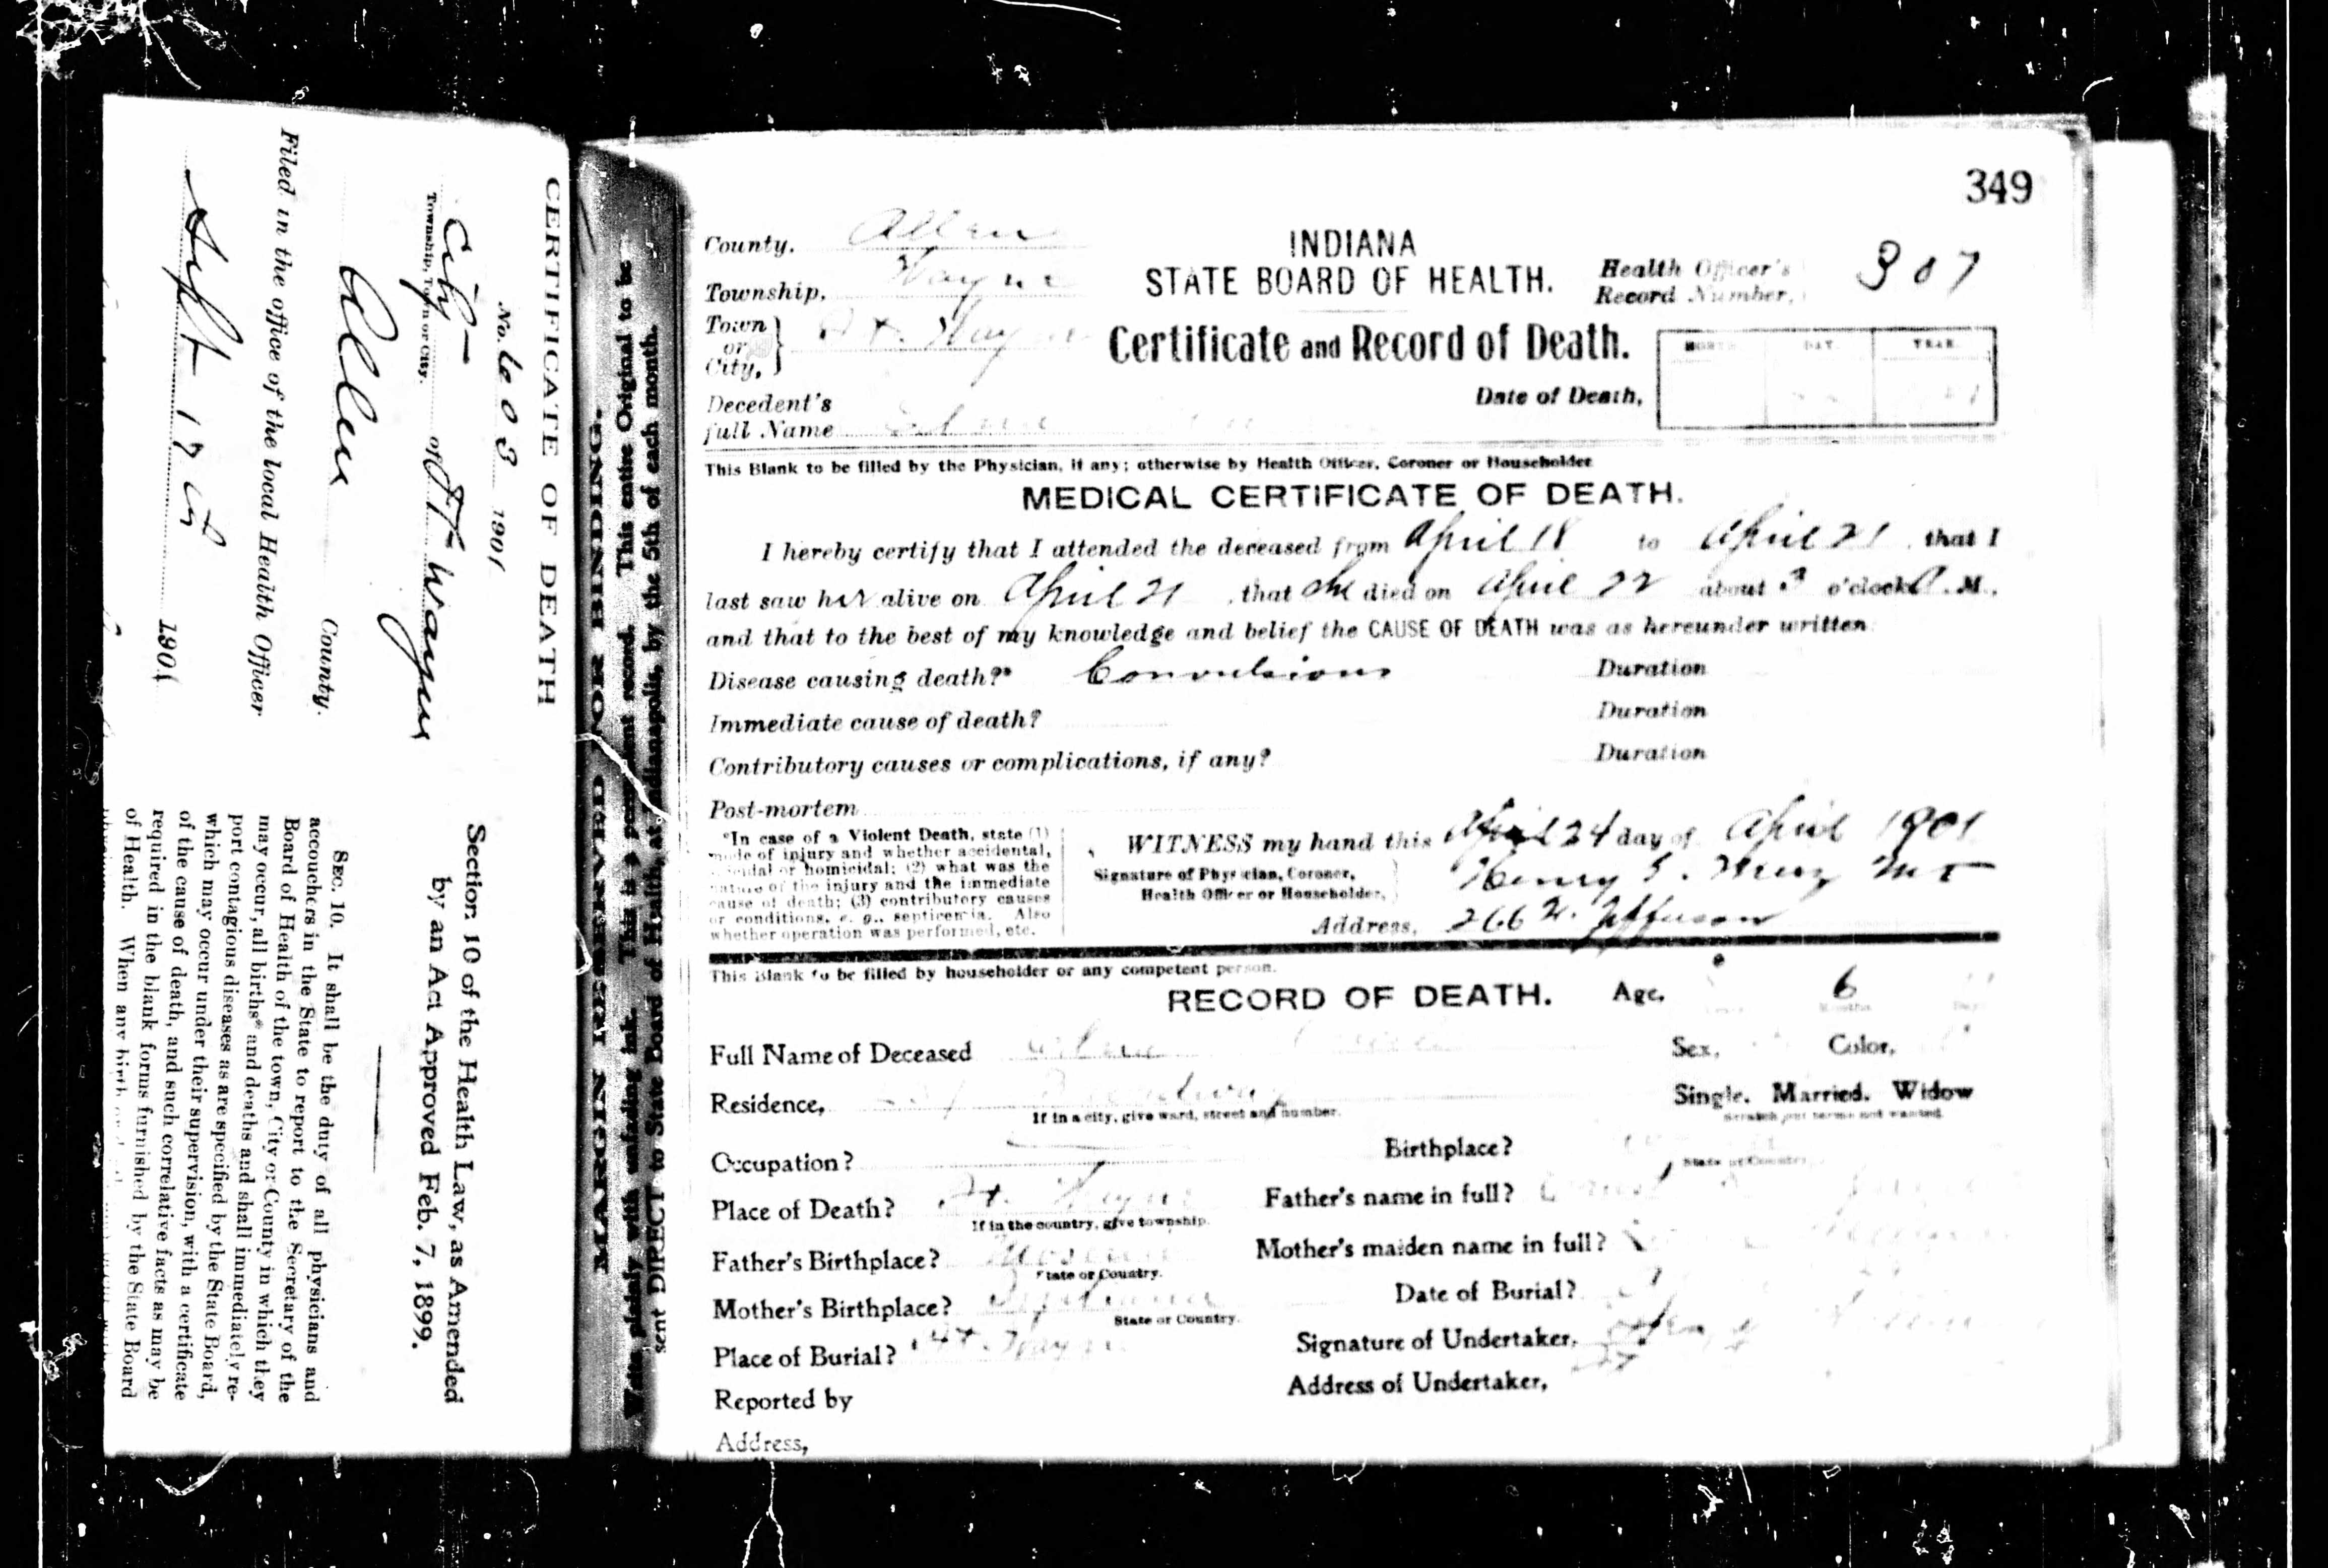 CERTIFICATE OF DEATH
No. 603 1901
City of Ft Wayne
Township, Town or City.
Allen County.
Filed in the office of the local Health Officer
Sept 17 1901
Section 10 of the Health Law, as Amended
by an Act Approved Feb. 7, 1899.
SEC. 10. It shall be the duty of all physicians and
accouchers in the State to report to the Secretary of the
Board of Health of the town, City or County in which they
may occur, all births* and deaths and shall immediately re-
port contagious diseases as are specified by the State Board,
which may occur under their supervision, with a certificate
of the cause of death, and such correlative facts as may be
required in the blank forms furnished by the State Board
of Health. When any birth
MARGIN RESERVED FOR BINDING.
Write plainly with unfading ink. This is a permanent record. This entire Original to be
sent DIRECT to State Board of Health, at Indianapolis, by the 5th of each month.
349
County. Allen
INDIANA
STATE BOARD OF HEALTH.
Health Officer's
Record Number, 307
Township, Wayne
Town
or
City, Ft. Wayne
Certificate and Record of Death.
MONTH DAY YEAR
Date of Death,
Decedent's
full Name
This Blank to be filled by the Physician, if any; otherwise by Health Officer, Coroner or Householder
MEDICAL CERTIFICATE OF DEATH.
I hereby certify that I attended the deceased from April 18 to April 21, that I
last saw her alive on April 21, that she died on April 22 about 3 o'clock A. M.,
and that to the best of my knowledge and belief the CAUSE OF DEATH was as hereunder written
Disease causing death?* Convulsions Duration
Immediate cause of death? Duration
Contributory causes or complications, if any? Duration
Post-mortem
*In case of a Violent Death, state (1)
mode of injury and whether accidental,
suicidal or homicidal; (2) what was the
nature of the injury and the immediate
cause of death; (3) contributory causes
or conditions, e. g., septicemia. Also
whether operation was performed, etc.
WITNESS my hand this April 24 day of April 1901
Signature of Physician, Coroner,
Health Officer or Householder, Henry
Address, 266 W. Jefferson
This Blank to be filled by householder or any competent person.
RECORD OF DEATH. Age, 6
Years Months Days
Full Name of Deceased
Sex, Color,
Residence, Broadway
If in a city, give ward, street and number.
Single. Married. Widow
Scratch out terms not wanted.
Occupation?
Birthplace?
State or Country.
Place of Death? Ft. Wayne
If in the country, give township.
Father's name in full?
Father's Birthplace?
State or Country.
Mother's maiden name in full?
Mother's Birthplace? Indiana
State or Country.
Date of Burial?
Place of Burial? Ft. Wayne
Signature of Undertaker,
Reported by
Address of Undertaker,
Address,